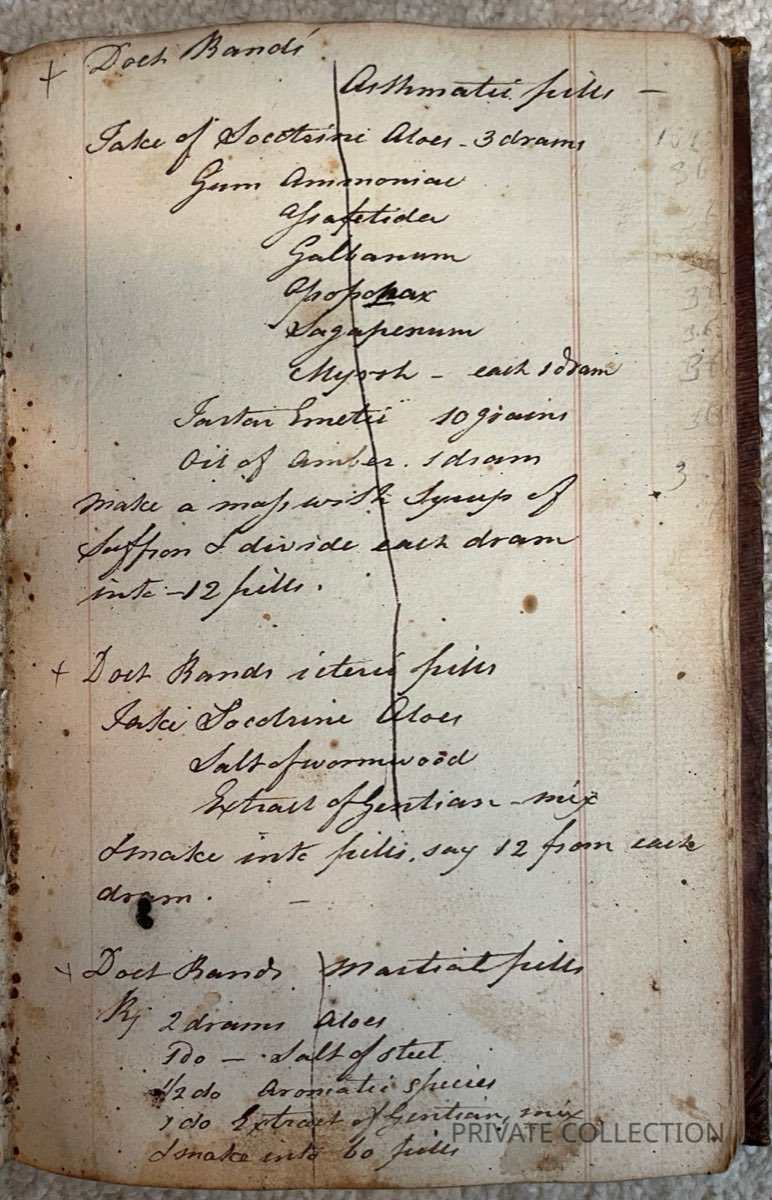 + Doct Rands
Asthmatic pills —
Take of Socotrine Aloes - 3 drams
Gum Ammoniac
Assafetida
Galbanum
Opoponax
Sagapenum
Myrrh - each 1 dram
Tartar Emetic 10 grains
Oil of Amber. 1 dram
Make a mass with Syrup of
Saffron & divide each dram
into - 12 pills.
+ Doct Rands icteric pills
Take Socotrine Aloes
Salt of wormwood
Extract of Gentian - mix
& make into pills, say 12 from each
dram. —
+ Doct Rands Martial pills
R 2 drams Aloes
1 Do — Salt of steel
1/2 do Aromatic species
1 do Extract of Gentian, mix
& make into 60 pills
PRIVATE COLLECTION